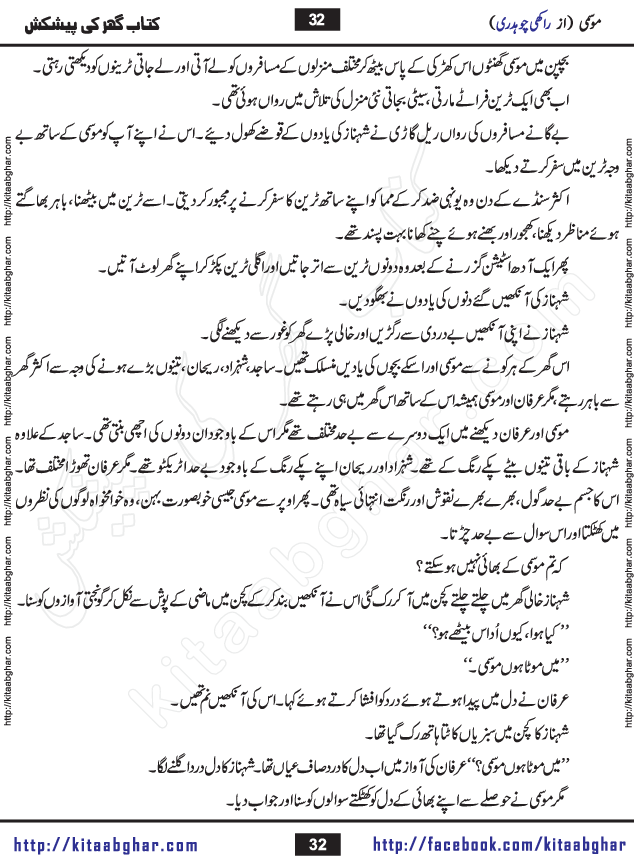 موسی (از راکھی چوہدری)
32
کتاب گھر کی پیشکش
بچپن میں موسی گھنٹوں اس کھڑکی کے پاس بیٹھ کر مختلف منزلوں کے مسافروں کو لے آتی اور لے جاتی ٹرینوں کو دیکھتی رہتی۔
اب بھی ایک ٹرین فراٹے مارتی، سیٹی بجاتی نئی منزل کی تلاش میں رواں ہوئی تھی۔
بے گانے مسافروں کی رواں ریل گاڑی نے شہناز کی یادوں کے قوضے کھول دیئے۔ اس نے اپنے آپ کو موسی کے ساتھ بے
وجہ ٹرین میں سفر کرتے دیکھا۔
اکثر سنڈے کے دن وہ یونہی ضد کر کے مما کو اپنے ساتھ ٹرین کا سفر کرنے پر مجبور کر دیتی۔ اسے ٹرین میں بیٹھنا، باہر بھاگتے
ہوئے مناظر دیکھنا، کھجور اور بھنے ہوئے چنے کھانا بہت پسند تھے۔
پھر ایک آدھ اسٹیشن گزرنے کے بعد وہ دونوں ٹرین سے اتر جاتیں اور اگلی ٹرین پکڑ کر اپنے گھر لوٹ آتیں۔
شہناز کی آنکھیں گئے دنوں کی یادوں نے بھگو دیں۔
شہناز نے اپنی آنکھیں بے دردی سے رگڑیں اور خالی پڑے گھر کو غور سے دیکھنے لگی۔
اس گھر کے ہر کونے سے موسی اور اسکے بچوں کی یادیں منسلک تھیں۔ ساجد، شہزاد، ریحان، تینوں بڑے ہونے کی وجہ سے اکثر گھر
سے باہر رہتے، مگر عرفان اور موسی ہمیشہ اس کے ساتھ اس گھر میں ہی رہتے تھے۔
موسی اور عرفان دیکھنے میں ایک دوسرے سے بے حد مختلف تھے مگر اس کے باوجود ان دونوں کی اچھی بنتی تھی۔ ساجد کے علاوہ
شہناز کے باقی تینوں بیٹے پکے رنگ کے تھے۔ شہزاد اور ریحان اپنے پکے رنگ کے باوجود بے حد اٹریکٹو تھے۔ مگر عرفان تھوڑا مختلف تھا۔
اس کا جسم بے حد گول، بھرے بھرے نقوش اور رنگت انتہائی سیاہ تھی۔ پھر اوپر سے موسی جیسی خوبصورت بہن، وہ خوامخواہ لوگوں کی نظروں
میں کھٹکتا اور اس سوال سے بے حد چڑتا۔
کہ تم موسی کے بھائی نہیں ہو سکتے؟
شہناز خالی گھر میں چلتے چلتے کچن میں آ کر رک گئی اس نے آنکھیں بند کر کے کچن میں ماضی کے پوش سے نکل کر گونجتی آوازوں کو سنا۔
’’کیا ہوا، کیوں اُداس بیٹھے ہو؟‘‘
’’میں موٹا ہوں موسی۔‘‘
عرفان نے دل میں پیدا ہوتے ہوئے درد کو افشا کرتے ہوئے کہا۔ اس کی آنکھیں نم تھیں۔
شہناز کا کچن میں سبزیاں کاٹتا ہاتھ رک گیا تھا۔
’’میں موٹا ہوں موسی؟‘‘ عرفان کی آواز میں اب دل کا درد صاف عیاں تھا۔ شہناز کا دل درد اگلنے لگا۔
مگر موسی نے حوصلے سے اپنے بھائی کے دل کو کھٹکتے سوالوں کو سنا اور جواب دیا۔
http://kitaabghar.com
32
http://facebook.com/kitaabghar
http://kitaabghar.com http://kitaabghar.com http://kitaabghar.com http://kitaabghar.com http://kitaabghar.com http://kitaabghar.com
http://kitaabghar.com http://kitaabghar.com http://kitaabghar.com http://kitaabghar.com http://kitaabghar.com http://kitaabghar.com
کتاب گھر کی پیشکش
kitaabghar.com